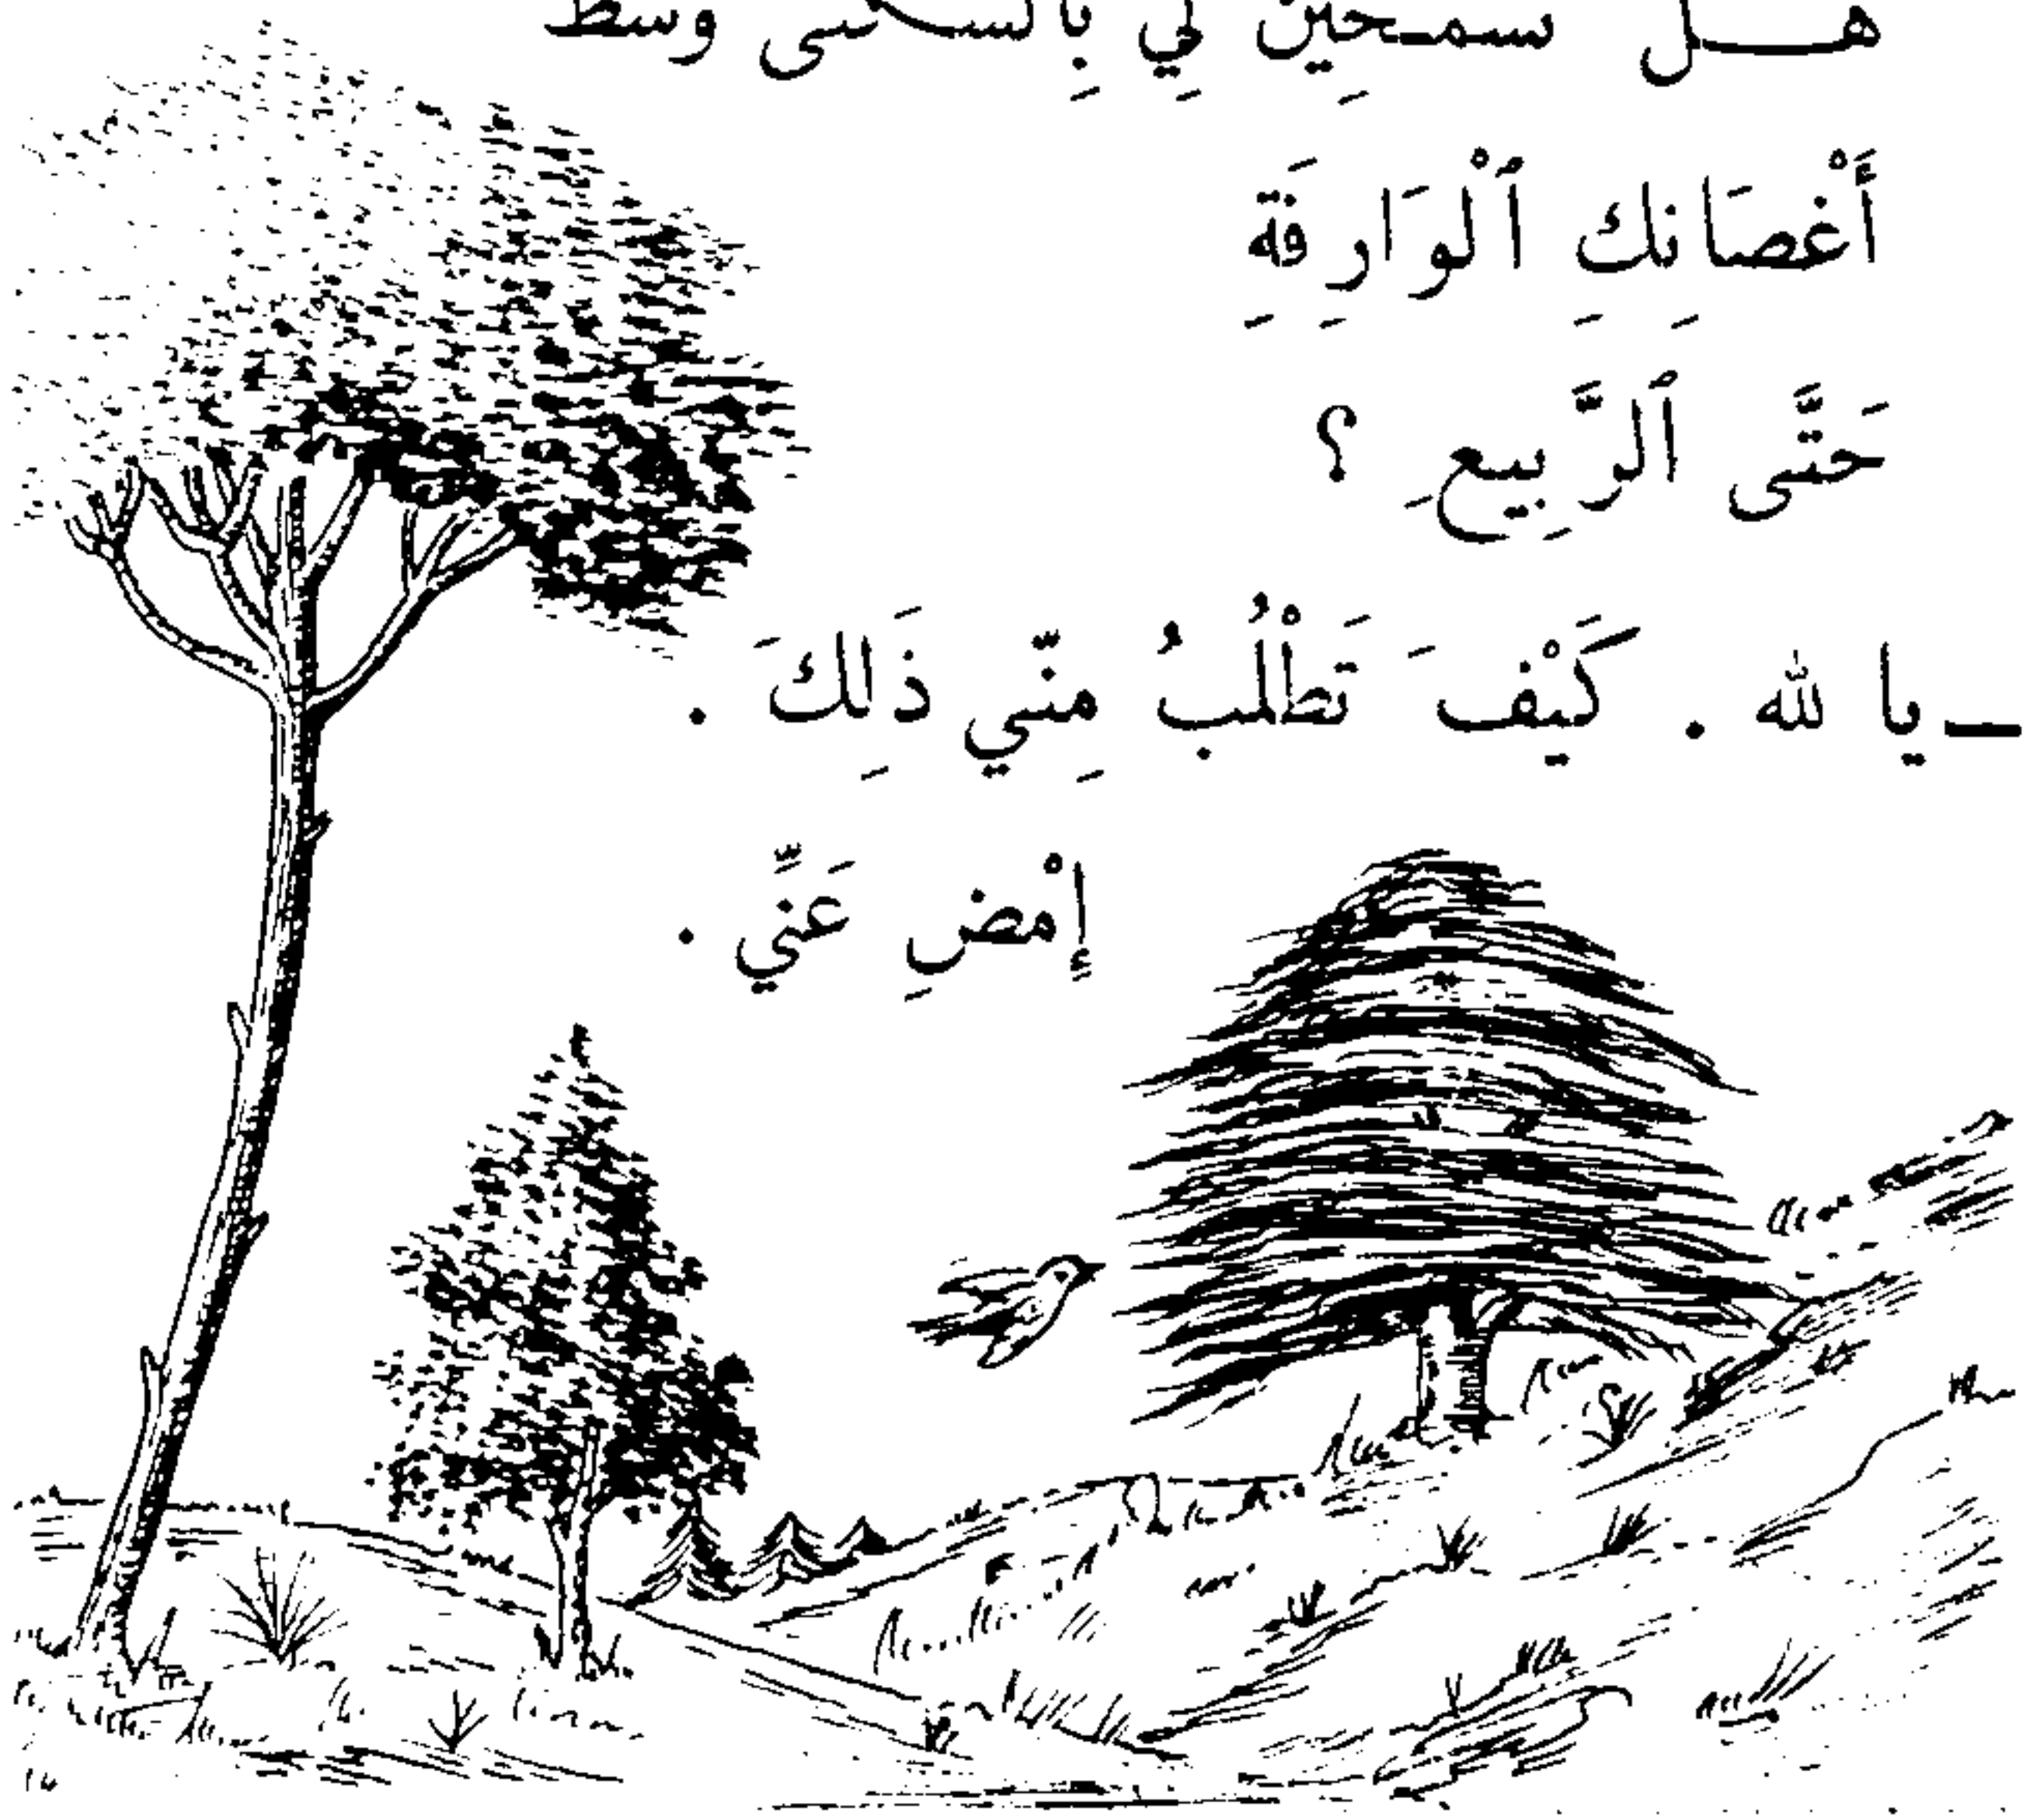 هل سمحين لي بالسكنى وسط
أَغْصَانِكِ ٱلْوَارِفَةِ
حَتَّى ٱلرَّبِيعِ ؟
ـ يا لله . كَيْفَ تَطْلُبُ مِنّي ذَلِكَ .
إِمْضِ عَنِّي .